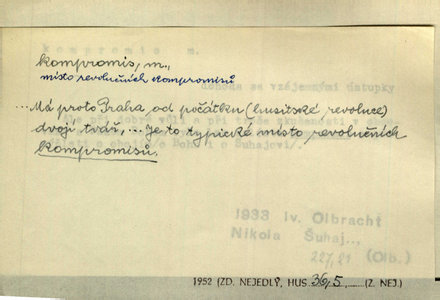 kompromis m.
kompromis, m.,
místo revolučních kompromisů
dohoda se vzájemnými ústupky
...Má proto Praha od počátku (husitské revoluce)
při dobré vůli a při
dvojí tvář, ... Je to typické místo revolučních
kompromisů.
1933 Iv. Olbracht
Nikola Šuhaj..,
227,21 (Olb.)
1952 (ZD. NEJEDLÝ, HUS. 36,5, ...... (Z. NEJ.)